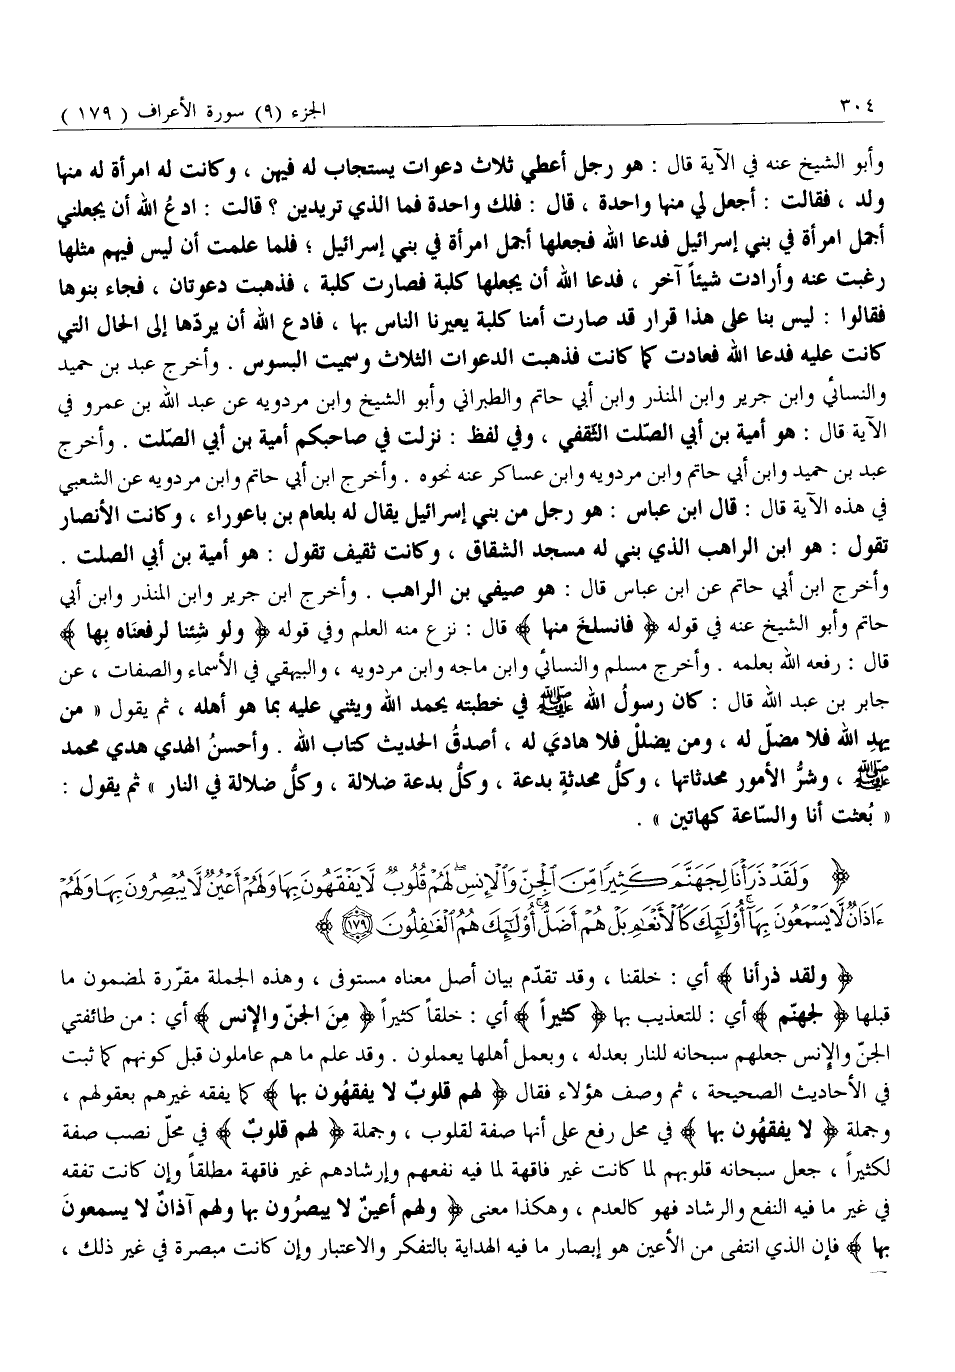 ٣٠٤ الجزء (٩) سورة الأعراف ( ١٧٩ )
وأبو الشيخ عنه في الآية قال : هو رجل أعطي ثلاث دعوات يستجاب له فيهن ، وكانت له امرأة له منها
ولد ، فقالت : أجعل لي منها واحدة ، قال : فلك واحدة فما الذي تريدين ؟ قالت : ادعُ الله أن يجعلني
أجمل امرأة في بني إسرائيل فدعا الله فجعلها أجمل امرأة في بني إسرائيل ؛ فلما علمت أن ليس فيهم مثلها
رغبت عنه وأرادت شيئاً آخر ، فدعا الله أن يجعلها كلبة فصارت كلبة ، فذهبت دعوتان ، فجاء بنوها
فقالوا : ليس بنا على هذا قرار قد صارت أمنا كلبة يعيرنا الناس بها ، فادع الله أن يردّها إلى الحال التي
كانت عليه فدعا الله فعادت كما كانت فذهبت الدعوات الثلاث وسميت البسوس . وأخرج عبد بن حميد
والنسائي وابن جرير وابن المنذر وابن أبي حاتم والطبراني وأبو الشيخ وابن مردويه عن عبد الله بن عمرو في
الآية قال : هو أمية بن أبي الصّلت الثّقفي ، وفي لفظ : نزلت في صاحبكم أمية بن أبي الصّلت . وأخرج
عبد بن حميد وابن أبي حاتم وابن مردويه وابن عساكر عنه نحوه . وأخرج ابن أبي حاتم وابن مردويه عن الشعبي
في هذه الآية قال : قال ابن عباس : هو رجل من بني إسرائيل يقال له بلعام بن باعوراء ، وكانت الأنصار
تقول : هو ابن الراهب الذي بني له مسجد الشقاق ، وكانت ثقيف تقول : هو أمية بن أبي الصلت .
وأخرج ابن أبي حاتم عن ابن عباس قال : هو صيفي بن الراهب . وأخرج ابن جرير وابن المنذر وابن أبي
حاتم وأبو الشيخ عنه في قوله ﴿ فانسلخَ منها ﴾ قال : نزع منه العلم وفي قوله ﴿ ولو شِئنا لرفعنَاه بِها ﴾
قال : رفعه الله بعلمه . وأخرج مسلم والنسائي وابن ماجه وابن مردويه ، والبيهقي في الأسماء والصفات ، عن
جابر بن عبد الله قال : كان رسولُ الله ﷺ في خطبته يحمد الله ويثني عليه بما هو أهله ، ثم يقول « من
يهدِ الله فلا مضلّ له ، ومن يضللْ فلا هاديَ له ، أصدقُ الحديث كتاب الله . وأحسنُ الهدي هدي محمد
ﷺ ، وشرُّ الأمور محدثاتها ، وكلُّ محدثةٍ بدعة ، وكلُّ بدعة ضلالة ، وكلُّ ضلالة في النار » ثم يقول :
« بُعثت أنا والسّاعة كهاتين » .
﴿ وَلَقَدْ ذَرَأْنَا لِجَهَنَّمَ كَثِيرًا مِّنَ ٱلْجِنِّ وَٱلْإِنسِ ۖ لَهُمْ قُلُوبٌ لَّا يَفْقَهُونَ بِهَا وَلَهُمْ أَعْيُنٌ لَّا يُبْصِرُونَ بِهَا وَلَهُمْ
ءَاذَانٌ لَّا يَسْمَعُونَ بِهَآ ۚ أُو۟لَٰٓئِكَ كَٱلْأَنْعَٰمِ بَلْ هُمْ أَضَلُّ ۚ أُو۟لَٰٓئِكَ هُمُ ٱلْغَٰفِلُونَ ١٧٩ ﴾
﴿ ولقد ذرأنا ﴾ أي : خلقنا ، وقد تقدّم بيان أصل معناه مستوفى ، وهذه الجملة مقرّرة لمضمون ما
قبلها ﴿ لجهنّم ﴾ أي : للتعذيب بها ﴿ كثيراً ﴾ أي : خلقاً كثيراً ﴿ مِنَ الجنّ والإنس ﴾ أي : من طائفتي
الجنّ والإنس جعلهم سبحانه للنار بعدله ، وبعمل أهلها يعملون . وقد علم ما هم عاملون قبل كونهم كما ثبت
في الأحاديث الصحيحة ، ثم وصف هؤلاء فقال ﴿ لهم قلوبٌ لا يفقهُون بها ﴾ كما يفقه غيرهم بعقولهم ،
وجملة ﴿ لا يفقهُون بها ﴾ في محل رفع على أنها صفة لقلوب ، وجملة ﴿ لهم قلوبٌ ﴾ في محلّ نصب صفة
لكثيراً ، جعل سبحانه قلوبهم لما كانت غير فاقهة لما فيه نفعهم وإرشادهم غير فاقهة مطلقاً وإن كانت تفقه
في غير ما فيه النفع والرشاد فهو كالعدم ، وهكذا معنى ﴿ ولهم أعينٌ لا يبصرُون بها ولهم آذانٌ لا يسمعونَ
بها ﴾ فإن الذي انتفى من الأعين هو إبصار ما فيه الهداية بالتفكر والاعتبار وإن كانت مبصرة في غير ذلك ،